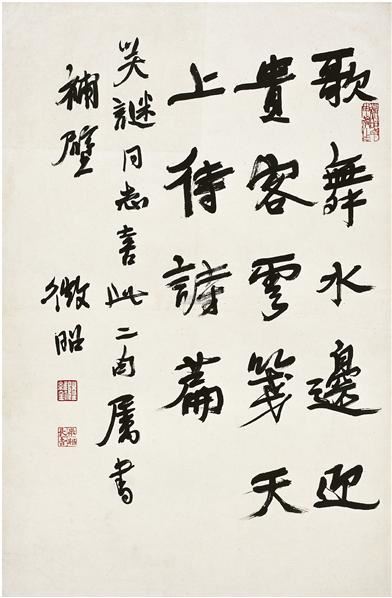 歌舞水邊迎
貴客雲箋天
上待詩篇
謎同志喜此二句屬書
補壁
微昭